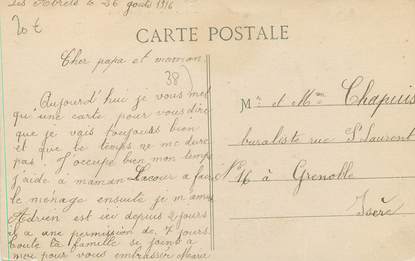 Les Abrets le 26 août 1916
CARTE POSTALE
Cher papa et maman
38
Aujourd'hui je vous met
qu'une carte pour vous dire
que je vais toujours bien
et que le temps ne me dure
pas. J'occupe bien mon temps
j'aide à maman Lacour a faire
le ménage ensuite je m'amuse
Adrien est ici depuis 2 jours
il a une permission de 7 jours
toute la famille se joint à
moi pour vous embrasser Marie
Mr et Mme Chapuis
buraliste rue St Laurent
No 16 à Grenoble
Isère